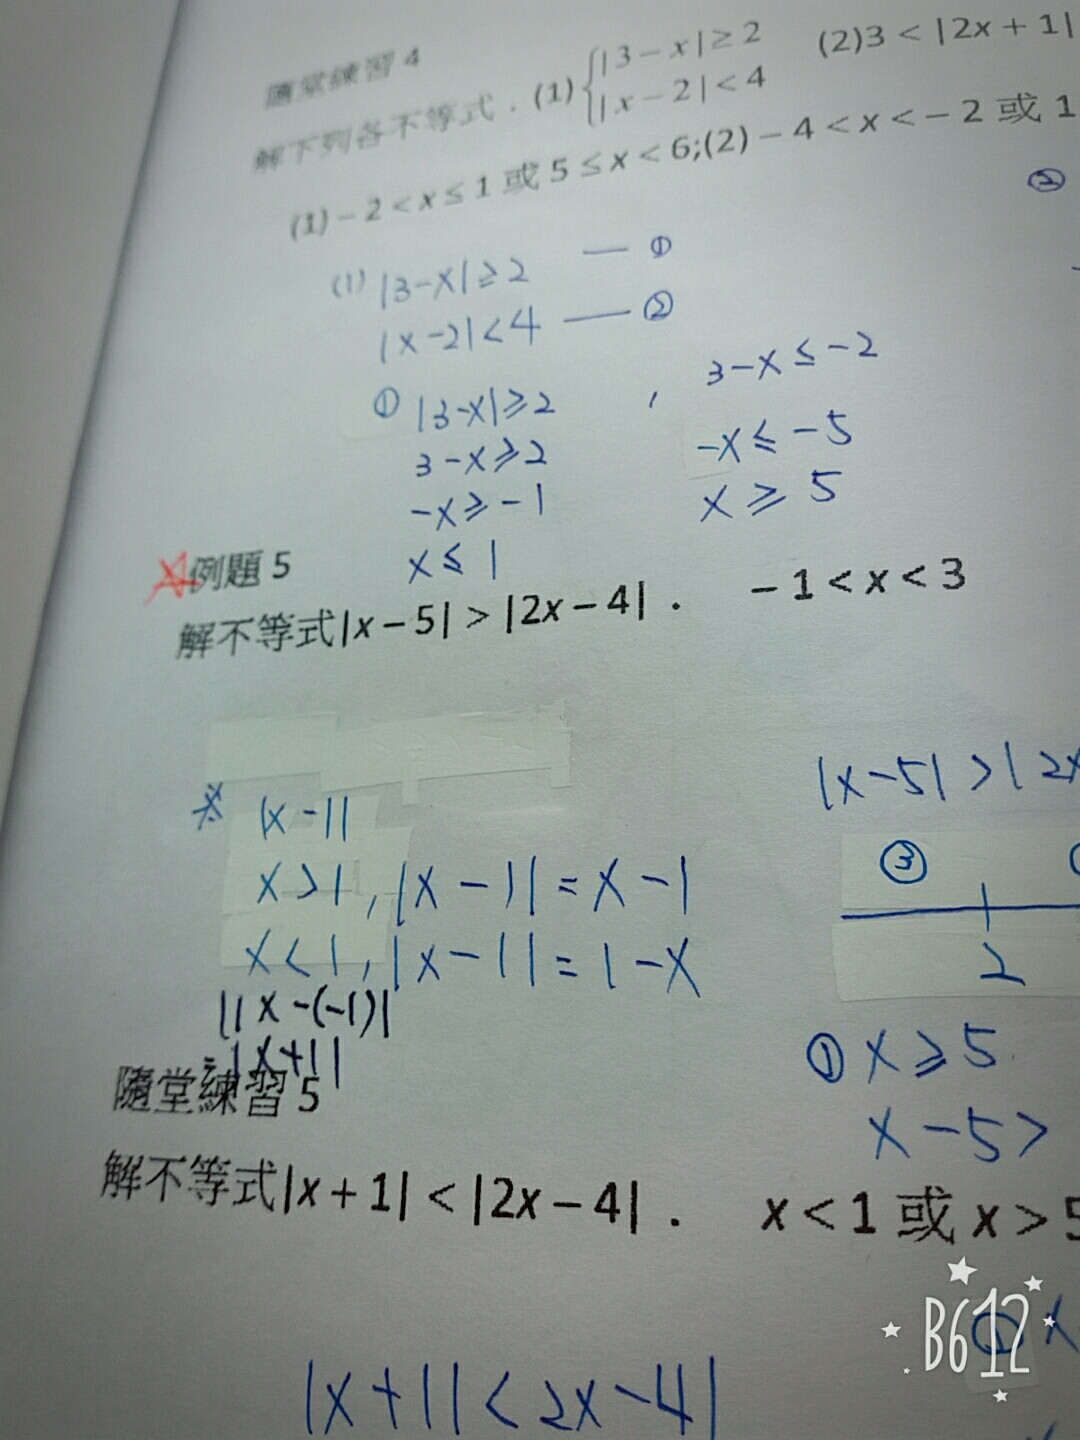 隨堂練習 4
解下列各不等式．(1){|3－x|≥2 |x－2|<4 (2)3<|2x＋1|
(1)－2<x≤1 或 5≤x<6;(2)－4<x<－2 或 1
②
(1) |3-x|≥2 — ①
|x-2|<4 — ②
① |3-x|≥2 , 3-x≤-2
3-x≥2 -x≤-5
-x≥-1 x≥5
x≤1
例題 5
解不等式|x－5|>|2x－4|． －1<x<3
|x-5|>|2x
※ |x-1|
x>1, |x-1|=x-1
x<1, |x-1|=1-x
||x-(-1)|
=|x+1|
③
2
① x≥5
x-5>
隨堂練習 5
解不等式|x＋1|<|2x－4|． x<1 或 x>5
B612
|x+1|<2x-4|